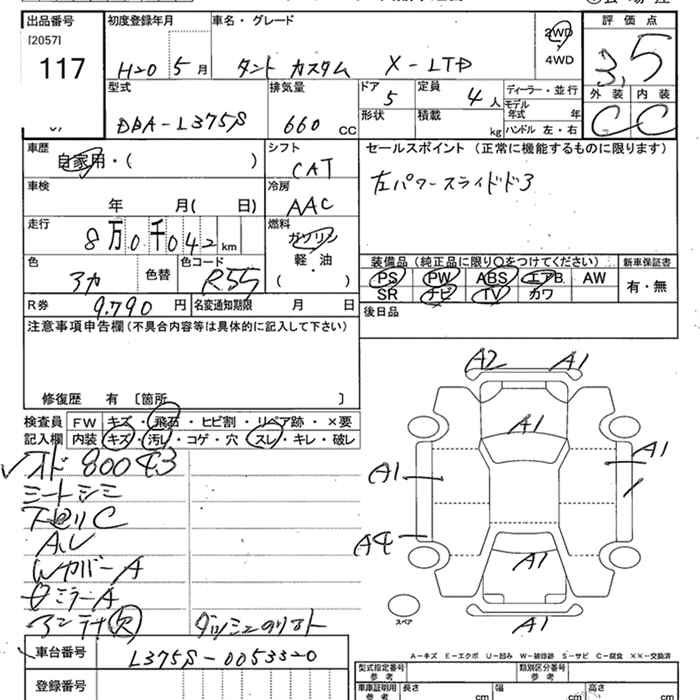 出品番号 [2057] 117
初度登録年月 H20 5月
車名・グレード タント カスタム X-LTD
2WD 4WD
評価点 3.5
型式 DBA-L375S
排気量 660 CC
ドア 5
形状
定員 4人
積載 kg
ディーラー・並行
モデル年式 年
ハンドル 左・右
外装 C 内装 C
車歴 自家用・( )
シフト CAT
セールスポイント (正常に機能するものに限ります)
左パワースライドド
車検 年 月( 日)
冷房 AAC
走行 8万0千042km
燃料 ガソリン 軽・油 ( )
色 アカ 色替 色コード R55
装備品 (純正品に限り○をつけてください) 新車保証書
PS PW ABS エアB AW 有・無
SR ナビ TV カワ
R券 9,790円 名変通知期限 月 日
後日品
注意事項申告欄 (不具合内容等は具体的に記入して下さい)
修復歴 有 〔箇所 〕
検査員 FW キズ・飛石・ヒビ割・リペア跡・×要
記入欄 内装 キズ・汚レ・コゲ・穴・スレ・キレ・破レ
シートシミ
下廻りC
AU
WカバーA
ミラーA
アンテナ欠
A2 A1
A1
A1 A1
A4
A1
A1
スペア
車台番号 L375S-0053320
登録番号
A-キズ E-エクボ U-凹み W-補修跡 S-サビ C-腐食 XX-交換済
型式指定番号 参考 類別区分番号 参考
車庫証明用 参考 長さ cm 幅 cm 高さ cm